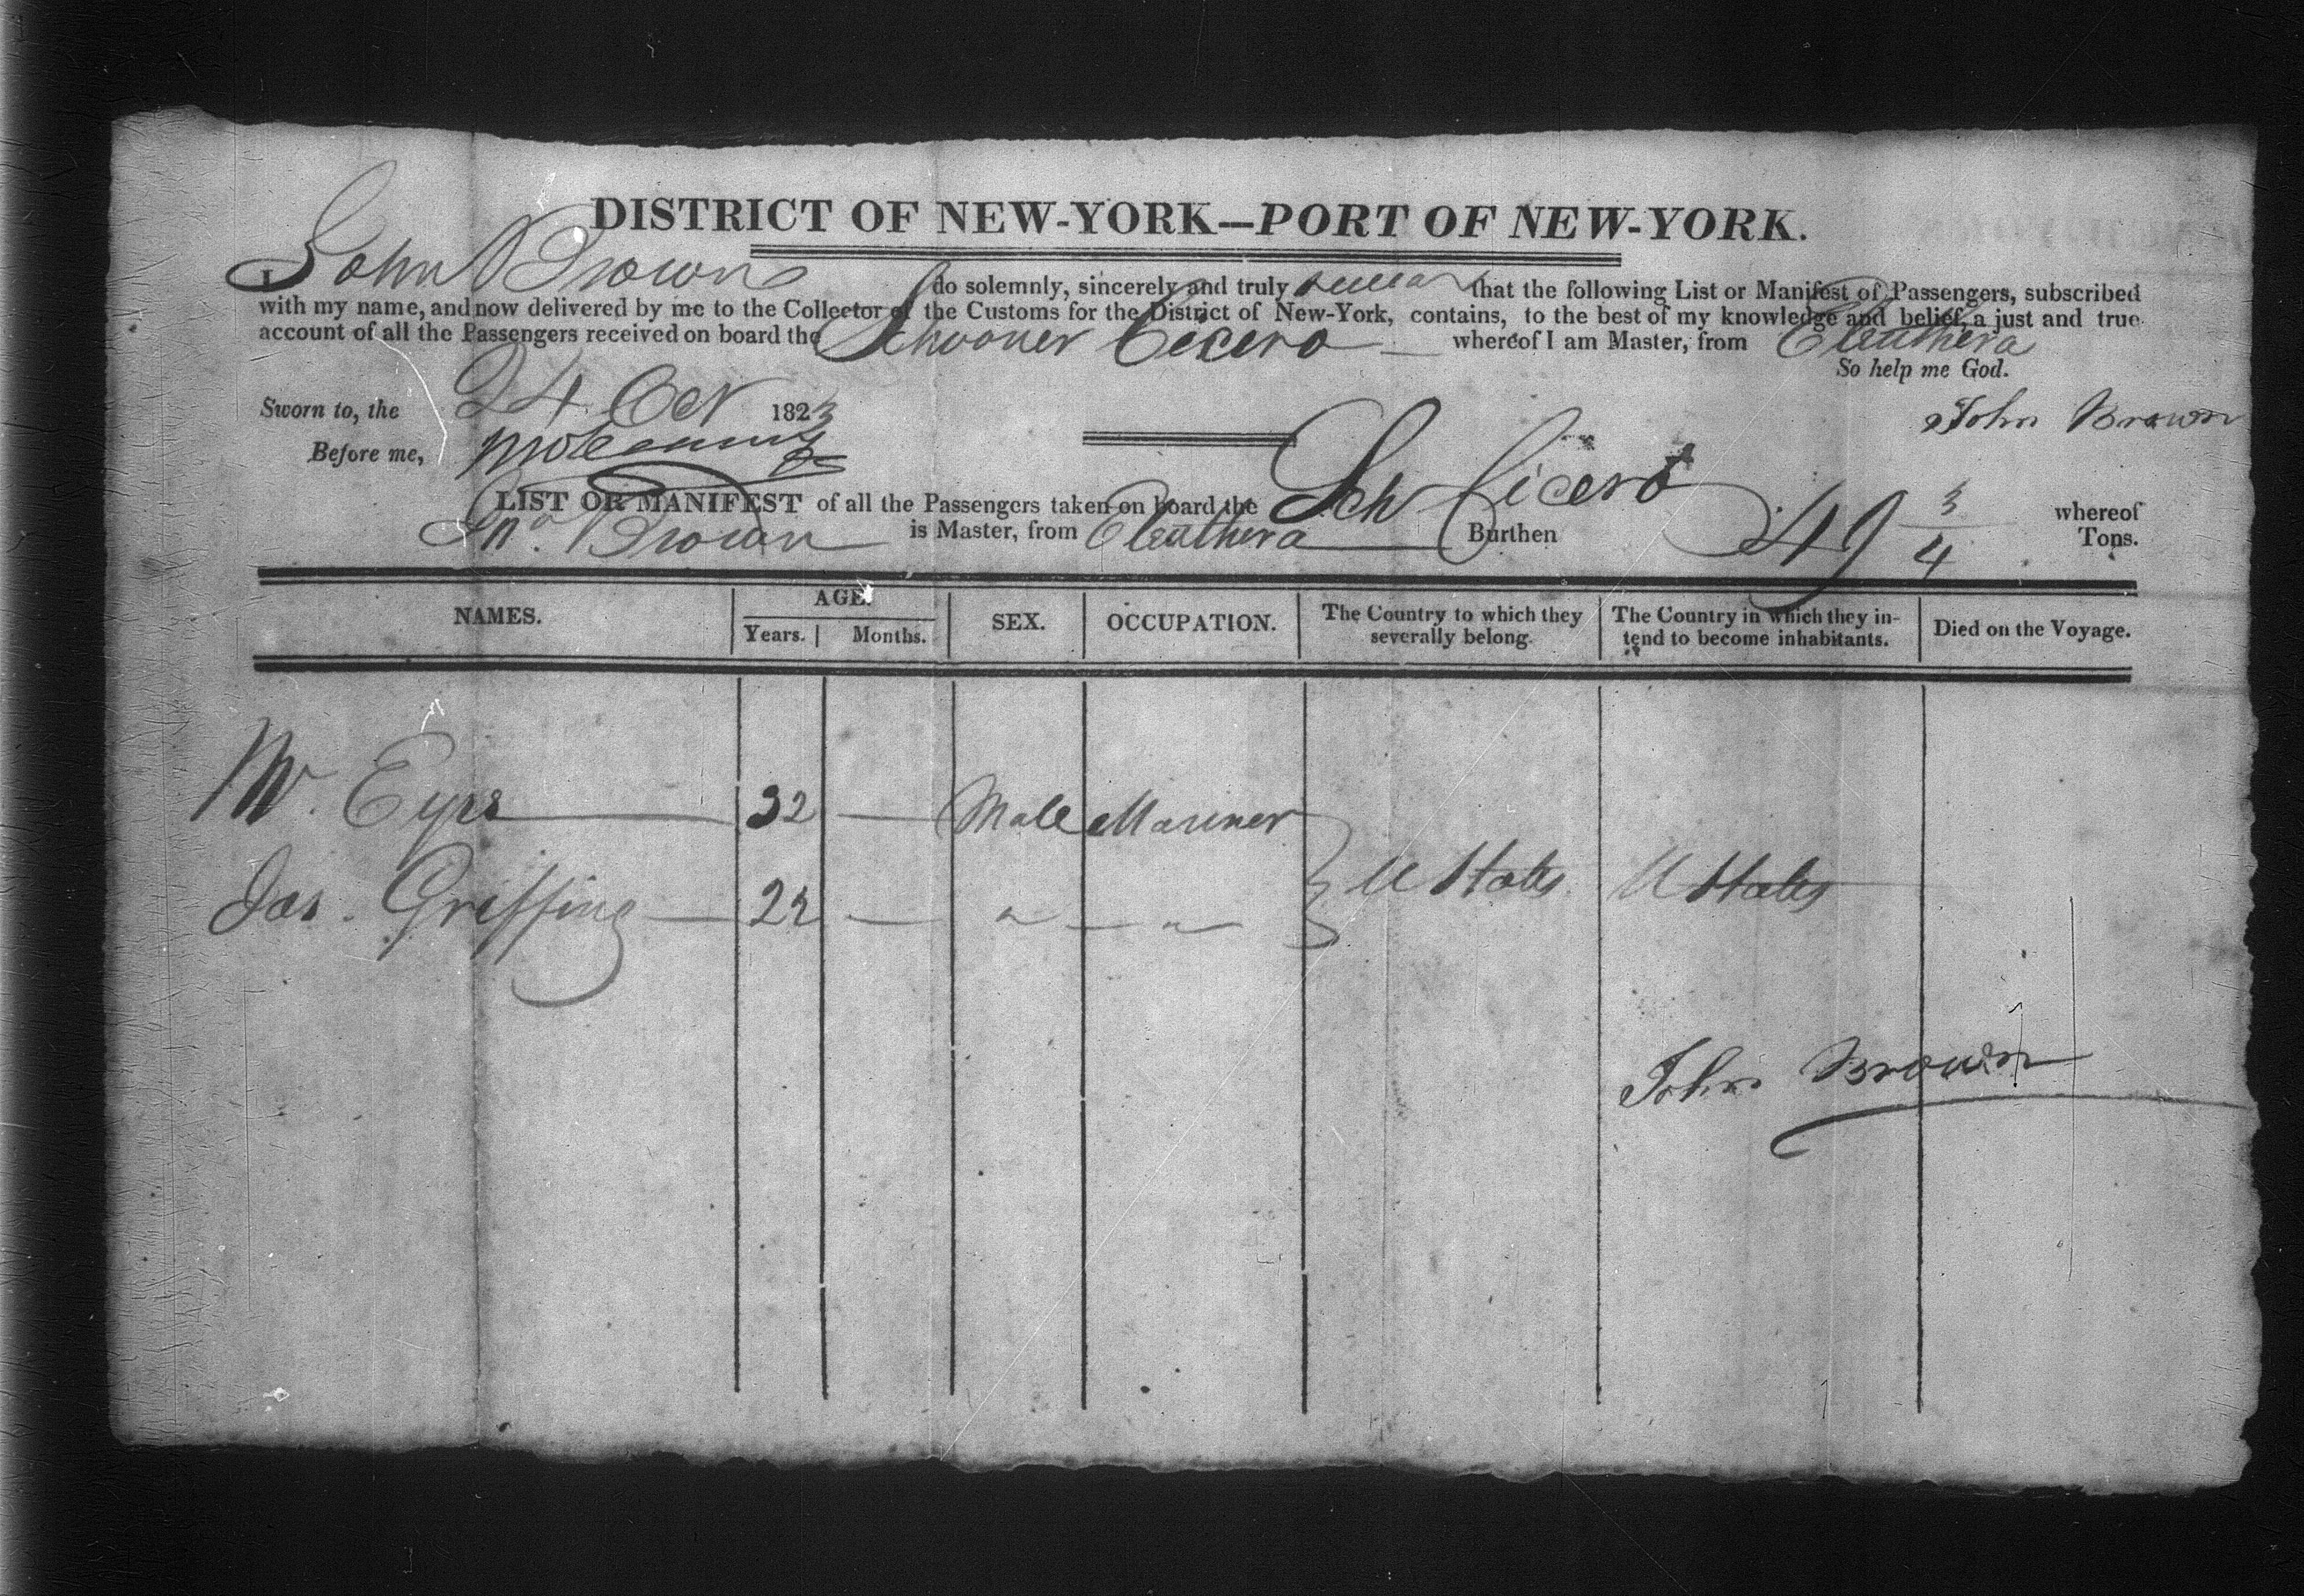 DISTRICT OF NEW-YORK—PORT OF NEW-YORK.
I John Brown do solemnly, sincerely and truly swear that the following List or Manifest of Passengers, subscribed
with my name, and now delivered by me to the Collector of the Customs for the District of New-York, contains, to the best of my knowledge and belief, a just and true
account of all the Passengers received on board the Schooner Cicero whereof I am Master, from Eleuthera
So help me God.
Sworn to, the 24 Oct 1823
John Brown
Before me,
LIST OR MANIFEST of all the Passengers taken on board the Sch Cicero whereof
Jno. Brown is Master, from Eleuthera Burthen 49 3/4 Tons.
NAMES. AGE. SEX. OCCUPATION. The Country to which they severally belong. The Country in which they intend to become inhabitants. Died on the Voyage.
Years. Months.
Mr. Eyre 32 — Male Mariner
Jas. Griffing 22 — " — " U States U States
John Brown